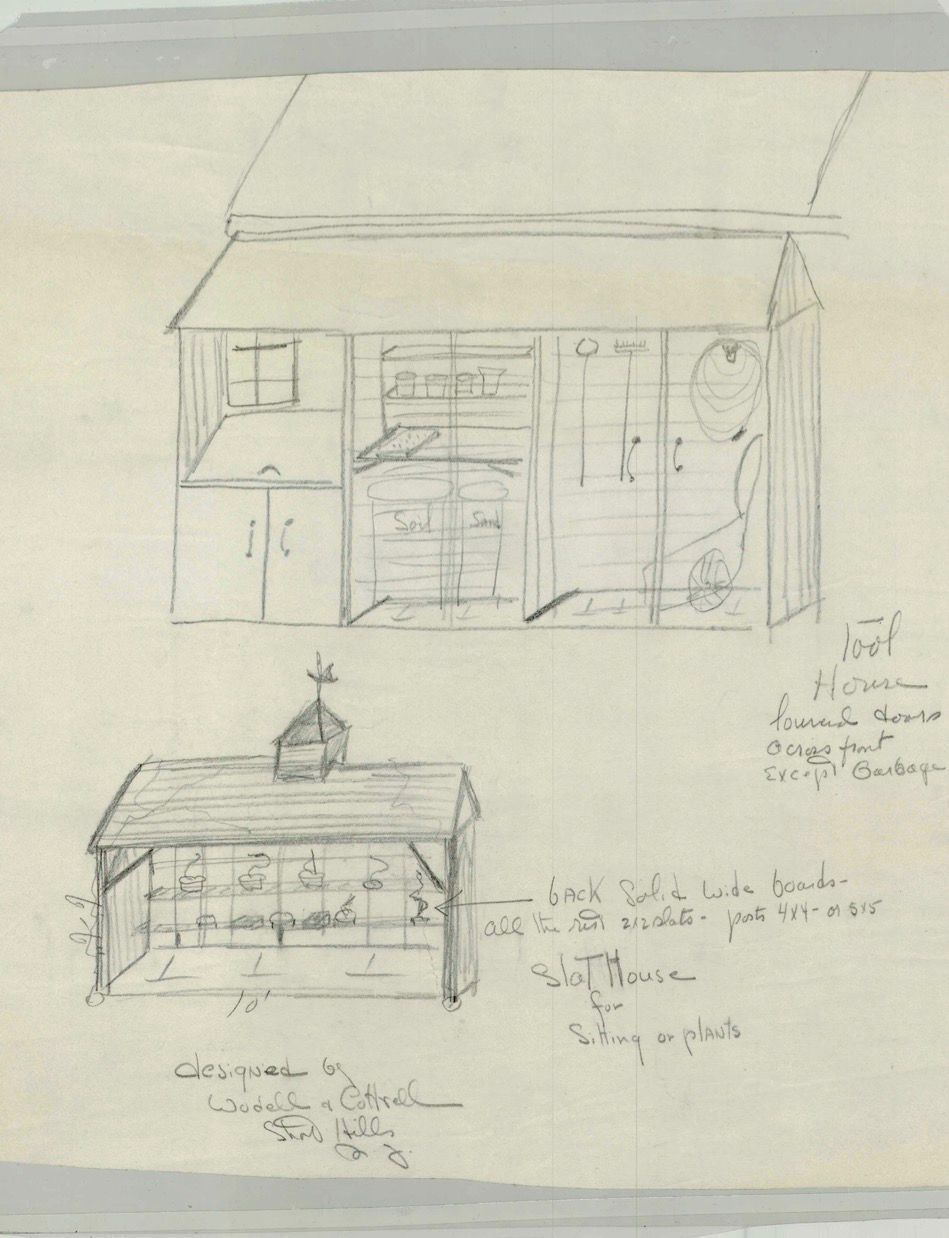 Soil
Sand
Tool
House
louvred doors
across front
Except Garbage
back Solid wide boards-
all the rest 2x2 slats - posts 4x4- or 5x5
Slat House
for
Sitting or plants
10'
designed by
Wodell & Cottrell
Short Hills
N. J.